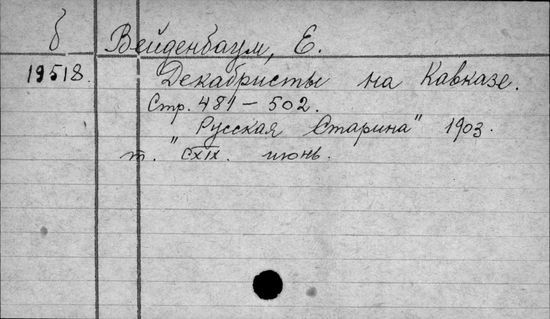 б Вейденбаум, Е.
19518. Декабристы на Кавказе.
Стр. 481 – 502.
"Русская Старина" 1903.
т. CXIX. июнь.